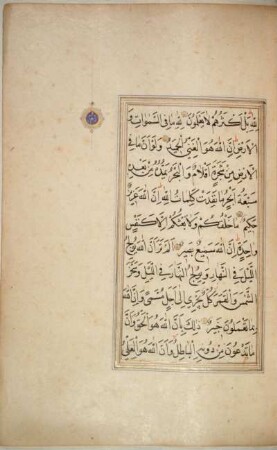 لله بل اكثرهم لا يعلمون لله ما فى السموات و
الارض ان الله هو الغنى الحميد ولو ان ما فى
الارض من شجرة اقلام والبحر يمده من بعده
سبعة ابحر ما نفدت كلمات الله ان الله عزيز
حكيم ما خلقكم ولا بعثكم الا كنفس
واحدة ان الله سميع بصير الم تر ان الله يولج
الليل فى النهار ويولج النهار فى الليل وسخر
الشمس والقمر كل يجرى الى اجل مسمى وان الله
بما تعملون خبير ذلك بان الله هو الحق وان
ما يدعون من دونه الباطل وان الله هو العلى